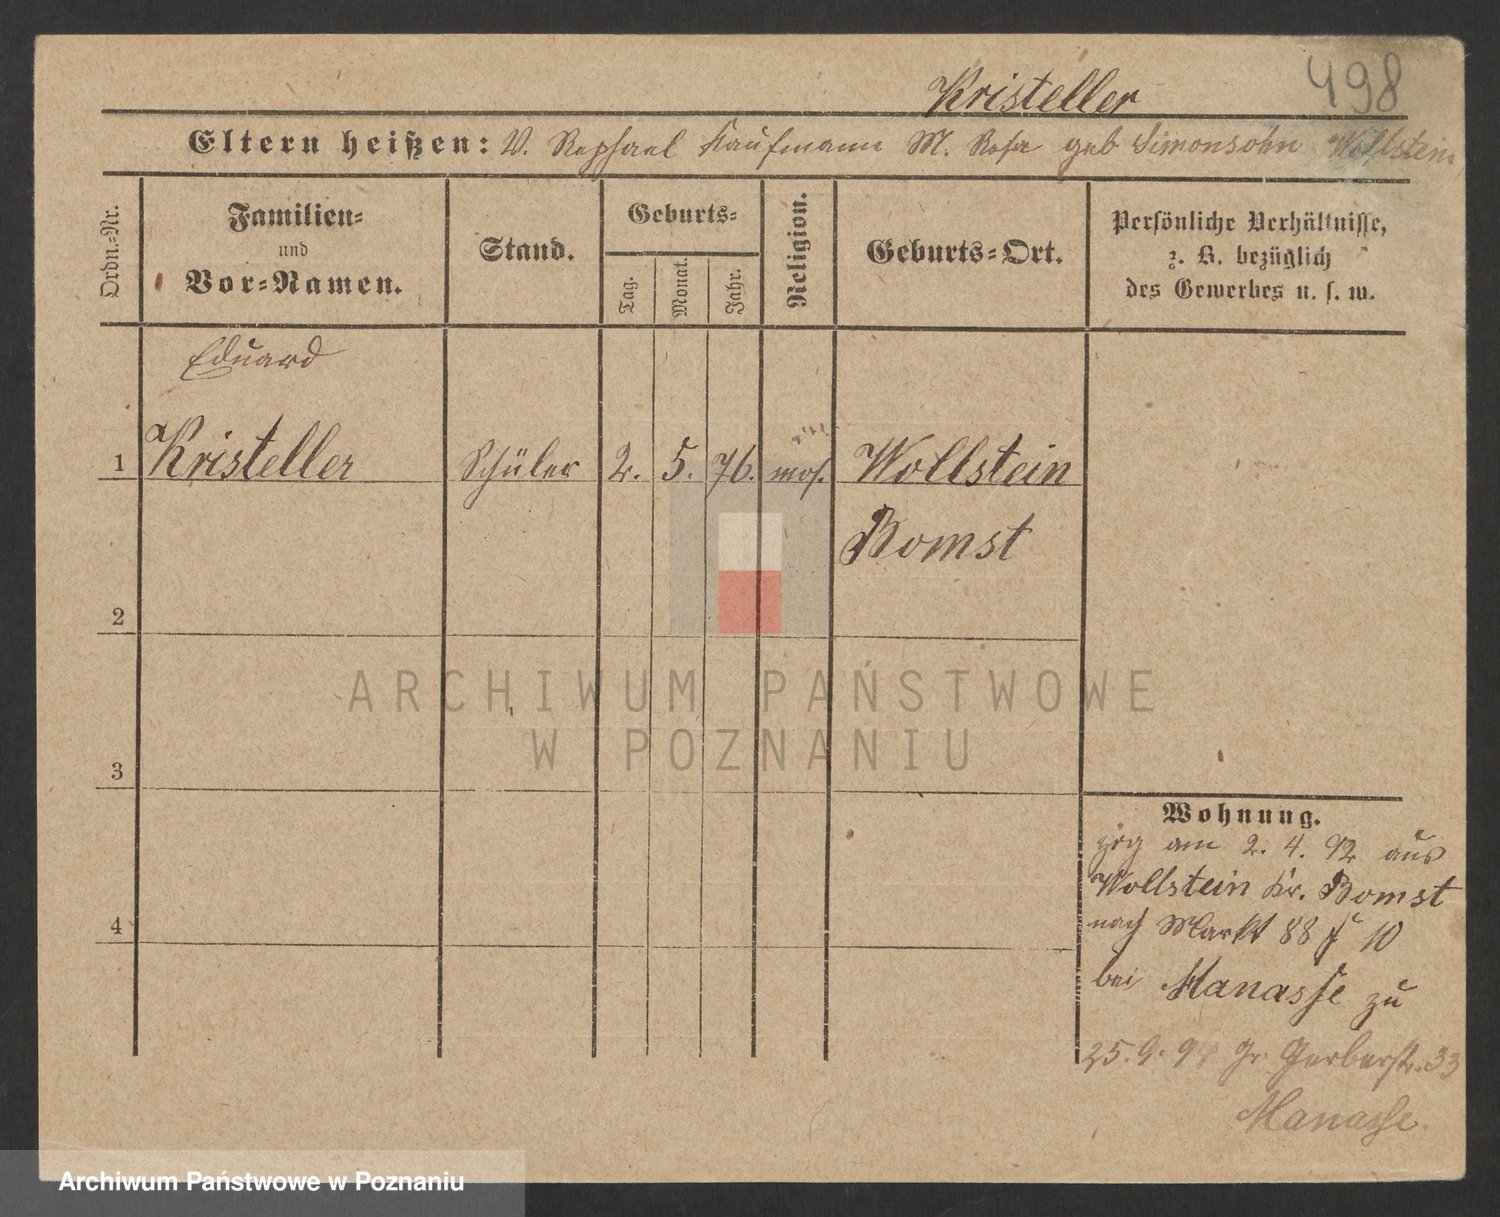 498
Kristeller
Eltern heißen: V. Raphael Kaufmann M. Rosa geb Simonsohn Wollstein
Ordn.-Nr.
Familien-
und
Vor-Namen.
Stand.
Geburts-
Tag.
Monat.
Jahr.
Religion.
Geburts-Ort.
Persönliche Verhältnisse,
z. B. bezüglich
des Gewerbes u. s. w.
Eduard
1 Kristeller Schüler 2. 5. 76. mos. Wollstein
Bomst
2
ARCHIWUM PAŃSTWOWE
W POZNANIU
3
Wohnung.
zog am 2. 4. 92 aus
Wollstein Kr. Bomst
nach Markt 88 10
4
bei Manasse zu
25. 9. Gr Gerberstr. 33
Manasse.
Archiwum Państwowe w Poznaniu